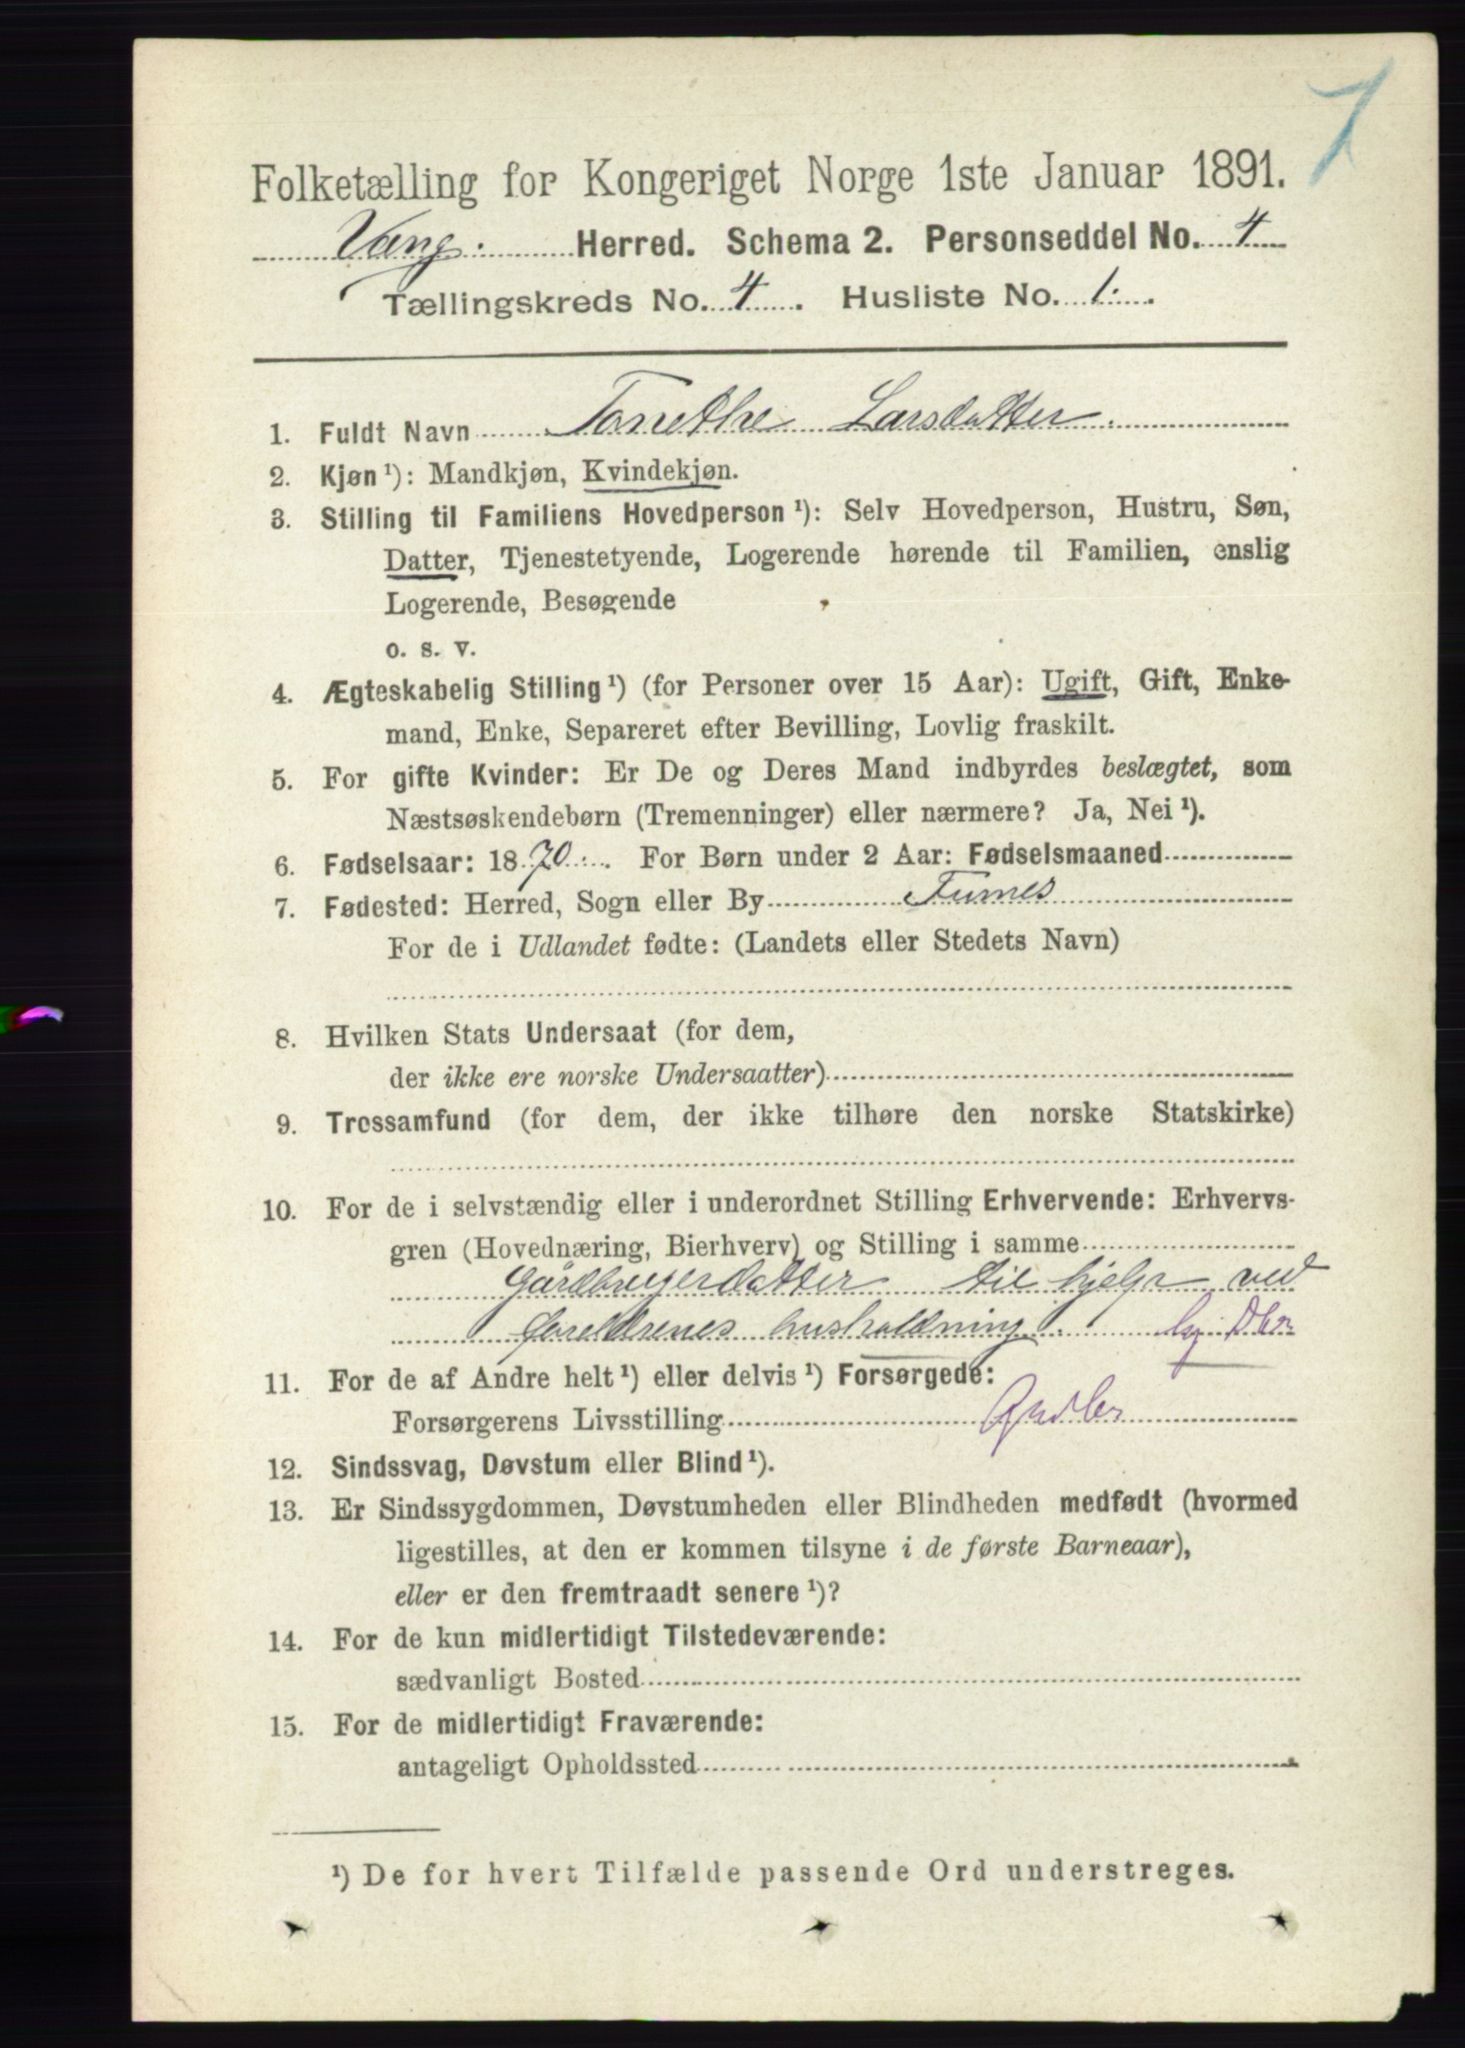 7
Folketælling for Kongeriget Norge 1ste Januar 1891.
Vang. Herred. Schema 2. Personseddel No. 4
Tællingskreds No. 4. Husliste No. 1.
1. Fuldt Navn Tonethe Larsdatter.
2. Kjøn ¹): Mandkjøn, Kvindekjøn.
3. Stilling til Familiens Hovedperson ¹): Selv Hovedperson, Hustru, Søn,
Datter, Tjenestetyende, Logerende hørende til Familien, enslig
Logerende, Besøgende
o. s. v.
4. Ægteskabelig Stilling ¹) (for Personer over 15 Aar): Ugift, Gift, Enke-
mand, Enke, Separeret efter Bevilling, Lovlig fraskilt.
5. For gifte Kvinder: Er De og Deres Mand indbyrdes beslægtet, som
Næstsøskendebørn (Tremenninger) eller nærmere? Ja, Nei ¹).
6. Fødselsaar: 1870. For Børn under 2 Aar: Fødselsmaaned
7. Fødested: Herred, Sogn eller By Furnes
For de i Udlandet fødte: (Landets eller Stedets Navn)
8. Hvilken Stats Undersaat (for dem,
der ikke ere norske Undersaatter)
9. Trossamfund (for dem, der ikke tilhøre den norske Statskirke)
10. For de i selvstændig eller i underordnet Stilling Erhvervende: Erhvervs-
gren (Hovednæring, Bierhverv) og Stilling i samme
Gårdbrugerdatter til hjelp ved
foreldrenes husholdning.
11. For de af Andre helt ¹) eller delvis ¹) Forsørgede:
Forsørgerens Livsstilling Grdbr
12. Sindssvag, Døvstum eller Blind ¹).
13. Er Sindssygdommen, Døvstumheden eller Blindheden medfødt (hvormed
ligestilles, at den er kommen tilsyne i de første Barneaar),
eller er den fremtraadt senere ¹)?
14. For de kun midlertidigt Tilstedeværende:
sædvanligt Bosted
15. For de midlertidigt Fraværende:
antageligt Opholdssted
¹) De for hvert Tilfælde passende Ord understreges.